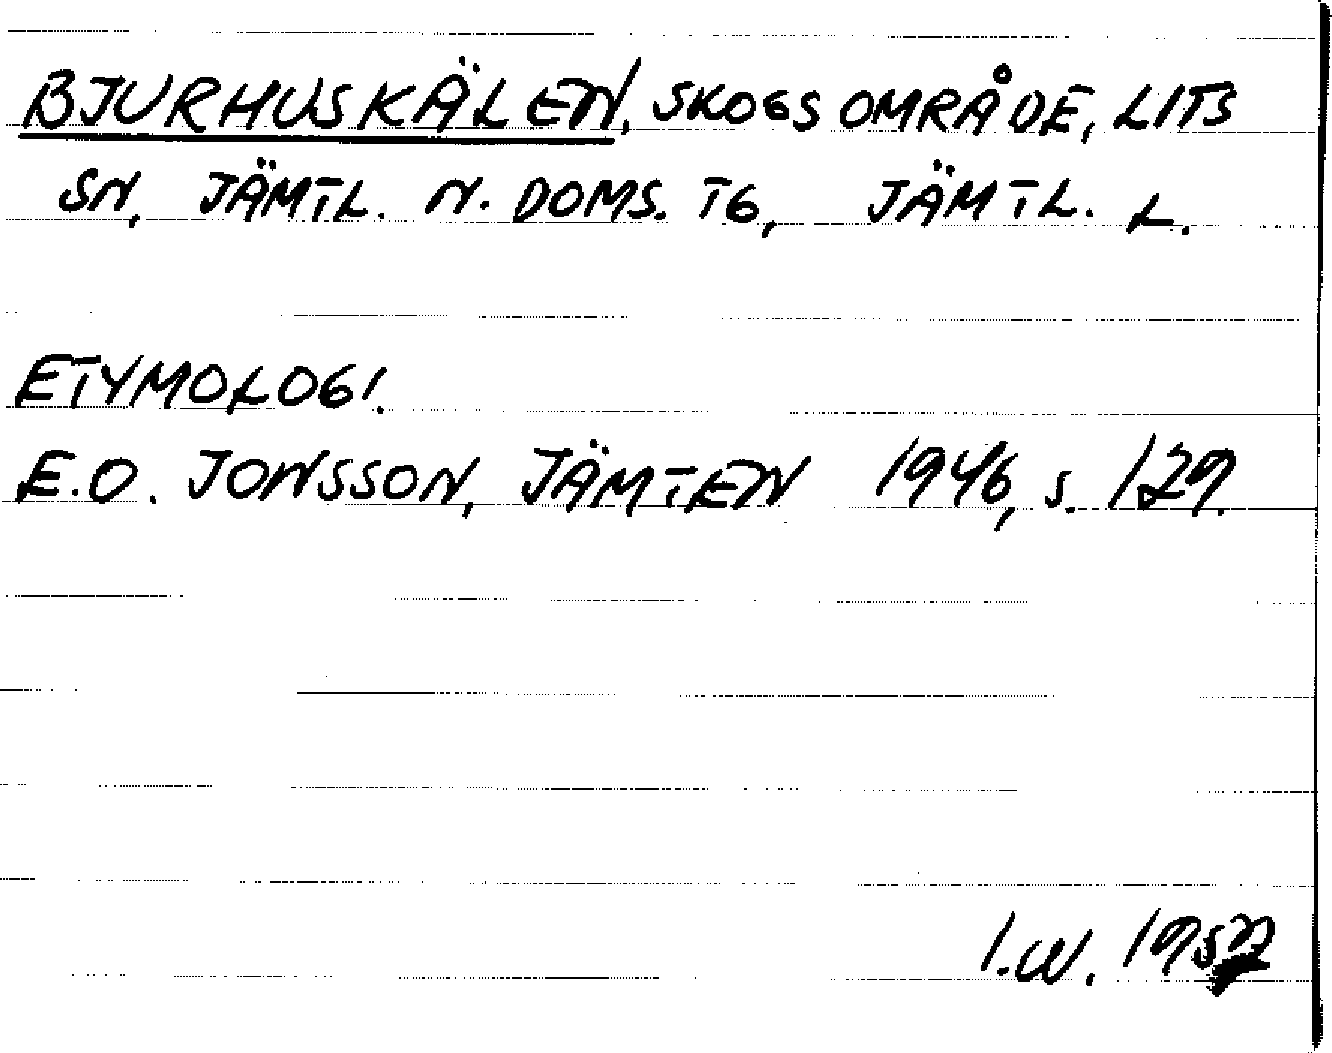 BJURHUSKÄLEN, SKOGSOMRÅDE, LITS
SN, JÄMTL. N. DOMS. TG, JÄMTL. L.
ETYMOLOGI.
E.O. JONSSON, JÄMTEN 1946, S. 129.
I.W.